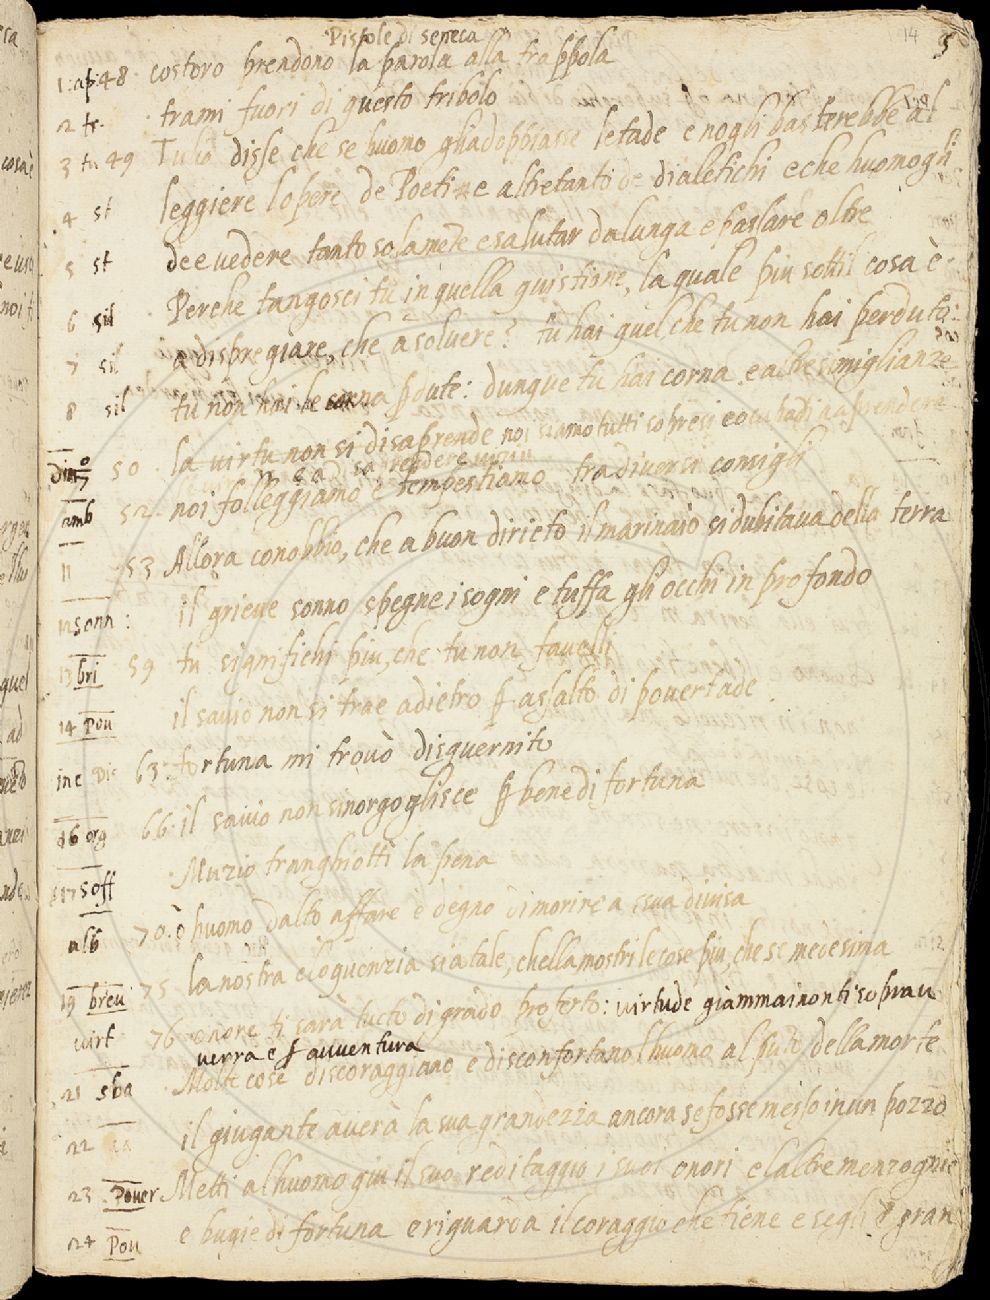 Pistole di seneca
14 5
1 ap: 48 costoro prendono la parola alla trappola
2 tr. trami fuori di questo tribolo
3 tu 49 Tulio disse che se huomo gliadoppiasse letade e nogli basterebbe al
4 st leggiere lopere de Poeti e altretanto de dialetichi e che huomo gli
5 st dee vedere tanto solamete e salutar dalunga e passare oltre
6 sil Perche tangosci tu in quella quistione, la quale piu sottil cosa è
7 sil a dispregiare, che a solvere? tu hai quel che tu non hai perduto:
8 sil tu non hai le corna pdute: dunque tu hai corna e altre simiglianze
50 la virtu non si disaprende noi siamo tutti sopresi eocupati
saprendere
amb 52. noi folleggiamo e tempestiamo tra diversi consigli
11 53 Allora conobbio, che a buon dirieto il marinaio si dubitava della terra
12 sonn: il grieve sonno spegne i sogni e tuffa gli occhi in profondo
13 bri 59 tu significhi piu, che tu non favelli
14 Pou il savio non si trae adietro p assalto di povertade.
ine Dis 63: fortuna mi trovò disguernito
16 org 66. il savio non sinorgoglisce p bene di fortuna
17 soff Muzio tranghiottì la pena
alb 70. ò huomo dalto affare è degno di morire a sua divisa
19 breu 75 la nostra eloquenzia sia tale, chella mostri le cose piu, che se medesima
virt 76 onore ti sarà tucto di grado proferto: virtude giammai non ti soprav
verra e p avventura
21 sba Molte cose discoraggiano e disconfortano lhuomo al puto della morte
22 il giugante averà la sua grandezzia ancora se fosse messo in un pozzo
23 Pover Metti alhuomo giu il suo reditaggio i suoi onori e laltre menzognie
24 Pou e bugie di fortuna e riguarda il coraggio che tiene e segli è gran